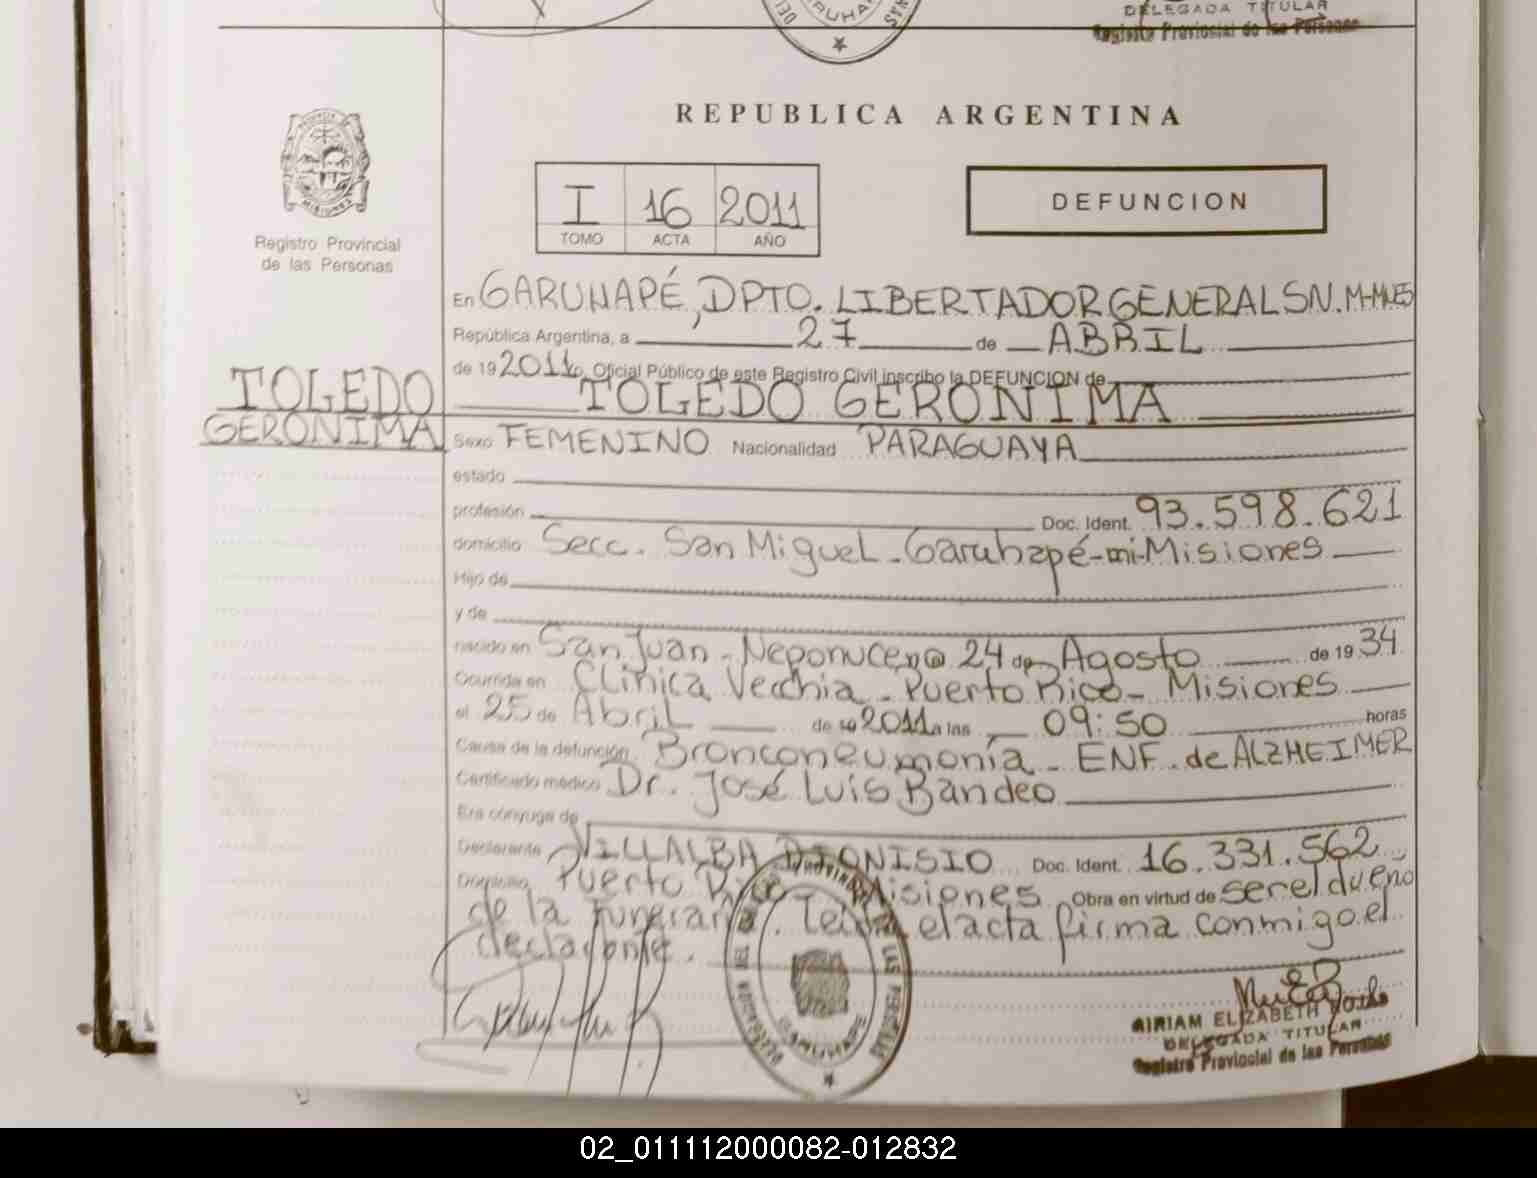 DELEGADA TITULAR
Registro Provincial de las Personas
REPUBLICA ARGENTINA
I 16 2011
TOMO ACTA AÑO
DEFUNCION
Registro Provincial
de las Personas
En GARUHAPÉ, DPTO. LIBERTADOR GENERAL SN. M-MNES
República Argentina, a 27 de ABRIL
de 19 2011 yo, Oficial Público de este Registro Civil inscribo la DEFUNCION de
TOLEDO
GERONIMA
TOLEDO GERONIMA
Sexo FEMENINO Nacionalidad PARAGUAYA
estado
profesión Doc. Ident. 93.598.621
domicilio Secc. San Miguel - Garuhapé-mi-Misiones
Hijo de
y de
nacido en San Juan - Neponuceno 24 de Agosto de 19 34
Ocurrida en Clínica Vecchia - Puerto Rico - Misiones
el 25 de Abril de 19 2011 a las 09:50 horas
Causa de la defunción Bronconeumonía - ENF. de ALZHEIMER
Certificado médico Dr. José Luis Bandeo
Era cónyuge de
Declarante VILLALBA DIONISIO Doc. Ident. 16.331.562
Domicilio Puerto Rico - Misiones Obra en virtud de ser el dueño
de la funeraria. Leída el acta firma conmigo el
declarante.
GARUHAPE
MIRIAM ELIZABETH
DELEGADA TITULAR
Registro Provincial de las Personas
02_011112000082-012832